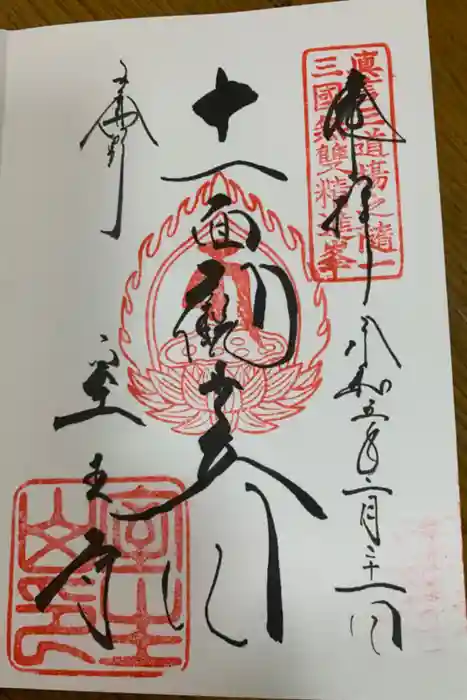 眞言三道場之隨一
三國無雙精進峯
奉拝
令和五年二月二十一日
十一面観世音
女人高野
室生寺